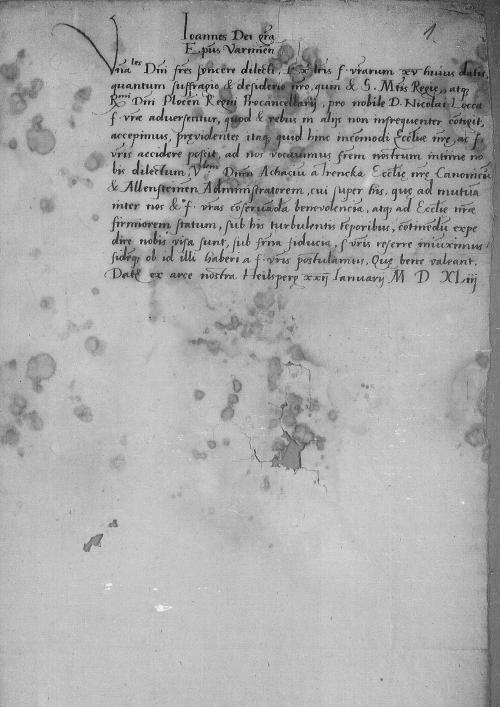 1
Ioannes Dei gra
E.pus Varmien
Vnales Dni fres syncere dilecti, Ex lris f. vrarum xv huius datis,
quantum suffragio & desiderio nro, quin & S. Mtis Regie, atq;
Rmi Dni Plocen Regni Procancellarij, pro nobile D. Nicolai Locca
f. vre adversentur, quod & rebus in alijs non infrequenter contigit,
accepimus, previdentes itaq; quid hinc incomodi Eccliae nre, ac f.
vris accidere possit, ad nos vocavimus frem nostrum intime no
bis dilectum, Vlem Dnm Achaciu a Trencka Eccliae nre Canonicu
& Allensteinen Administratorem, cui super his, que ad mutua
inter nos & f. vras coservada benevolencia, atq; ad Eccliae nre
firmiorem statum, sub his turbulentis teporibus, cotinedu expe
dire nobis visa sunt, sub srna fiducia, f. vris referre iniuximus
fideq; ob id illi haberi a f. vris postulamus. Que bene valeant.
Date ex arce nostra Heilsperg xxij Ianuarij M D XLiij